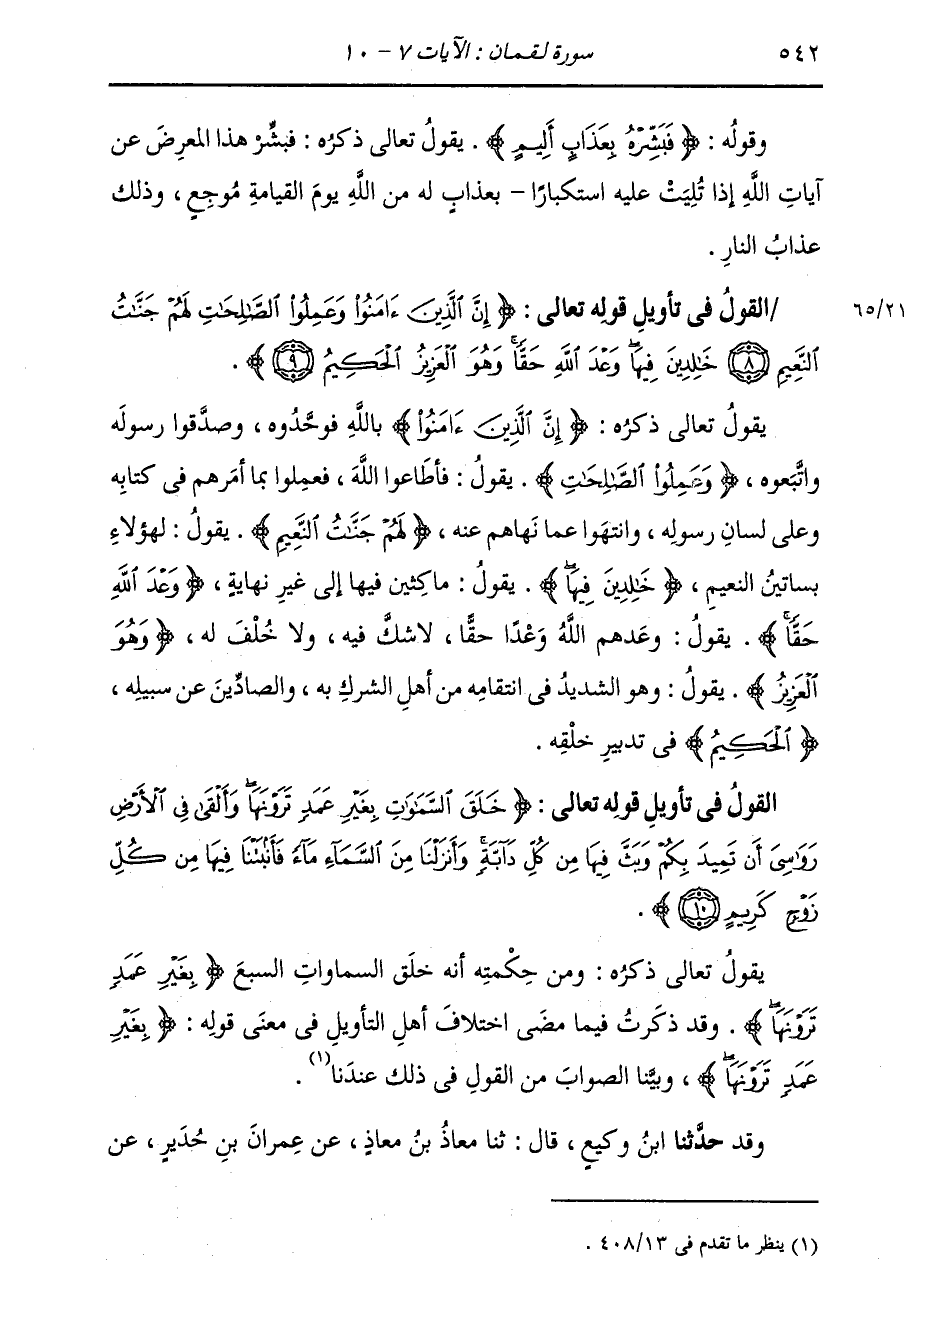 ٥٤٢ سورة لقمان : الآيات ٧ - ١٠
وقولُه : ﴿ فَبَشِّرْهُ بِعَذَابٍ أَلِيمٍ ﴾ . يقولُ تعالى ذكرُه : فبشِّرْ هذا المعرِضَ عن
آياتِ اللَّهِ إذا تُلِيَتْ عليه استكبارًا - بعذابٍ له من اللَّهِ يومَ القيامةِ مُوجِعٍ ، وذلك
عذابُ النارِ .
٦٥/٢١ /القولُ فى تأويلِ قولِه تعالى : ﴿ إِنَّ ٱلَّذِينَ ءَامَنُوا۟ وَعَمِلُوا۟ ٱلصَّـٰلِحَـٰتِ لَهُمْ جَنَّـٰتُ
ٱلنَّعِيمِ ۝٨ خَـٰلِدِينَ فِيهَا ۖ وَعْدَ ٱللَّهِ حَقًّا ۚ وَهُوَ ٱلْعَزِيزُ ٱلْحَكِيمُ ۝٩ ﴾ .
يقولُ تعالى ذكرُه : ﴿ إِنَّ ٱلَّذِينَ ءَامَنُوا۟ ﴾ باللَّهِ فوحَّدُوه ، وصدَّقوا رسولَه
واتَّبعوه ، ﴿ وَعَمِلُوا۟ ٱلصَّـٰلِحَـٰتِ ﴾ . يقولُ : فأطَاعوا اللَّهَ ، فعمِلوا بما أمَرهم فى كتابِه
وعلى لسانِ رسولِه ، وانتهَوا عما نَهاهم عنه ، ﴿ لَهُمْ جَنَّـٰتُ ٱلنَّعِيمِ ﴾ . يقولُ : لهؤلاءِ
بساتينُ النعيمِ ، ﴿ خَـٰلِدِينَ فِيهَا ۖ ﴾ . يقولُ : ماكِثين فيها إلى غيرِ نهايةٍ ، ﴿ وَعْدَ ٱللَّهِ
حَقًّا ۚ ﴾ . يقولُ : وعَدهم اللَّهُ وَعْدًا حقًّا ، لاشكَّ فيه ، ولا خُلْفَ له ، ﴿ وَهُوَ
ٱلْعَزِيزُ ﴾ . يقولُ : وهو الشديدُ فى انتقامِه من أهلِ الشركِ به ، والصادِّينَ عن سبيلِه ،
﴿ ٱلْحَكِيمُ ﴾ فى تدبيرِ خلْقِه .
القولُ فى تأويلِ قولِه تعالى : ﴿ خَلَقَ ٱلسَّمَـٰوَٰتِ بِغَيْرِ عَمَدٍ تَرَوْنَهَا ۖ وَأَلْقَىٰ فِى ٱلْأَرْضِ
رَوَٰسِىَ أَن تَمِيدَ بِكُمْ وَبَثَّ فِيهَا مِن كُلِّ دَآبَّةٍ ۚ وَأَنزَلْنَا مِنَ ٱلسَّمَآءِ مَآءً فَأَنۢبَتْنَا فِيهَا مِن كُلِّ
زَوْجٍ كَرِيمٍ ۝١٠ ﴾ .
يقولُ تعالى ذكرُه : ومن حِكْمتِه أنه خلَق السماواتِ السبعَ ﴿ بِغَيْرِ عَمَدٍ
تَرَوْنَهَا ۖ ﴾ . وقد ذكَرتُ فيما مضَى اختلافَ أهلِ التأويلِ فى معنَى قولِه : ﴿ بِغَيْرِ
عَمَدٍ تَرَوْنَهَا ۖ ﴾ ، وبيَّنا الصوابَ من القولِ فى ذلك عندَنا(١) .
وقد حدَّثنا ابنُ وكيعٍ ، قال : ثنا معاذُ بنُ معاذٍ ، عن عِمرانَ بنِ حُدَيرٍ ، عن
(١) ينظر ما تقدم فى ٤٠٨/١٣ .